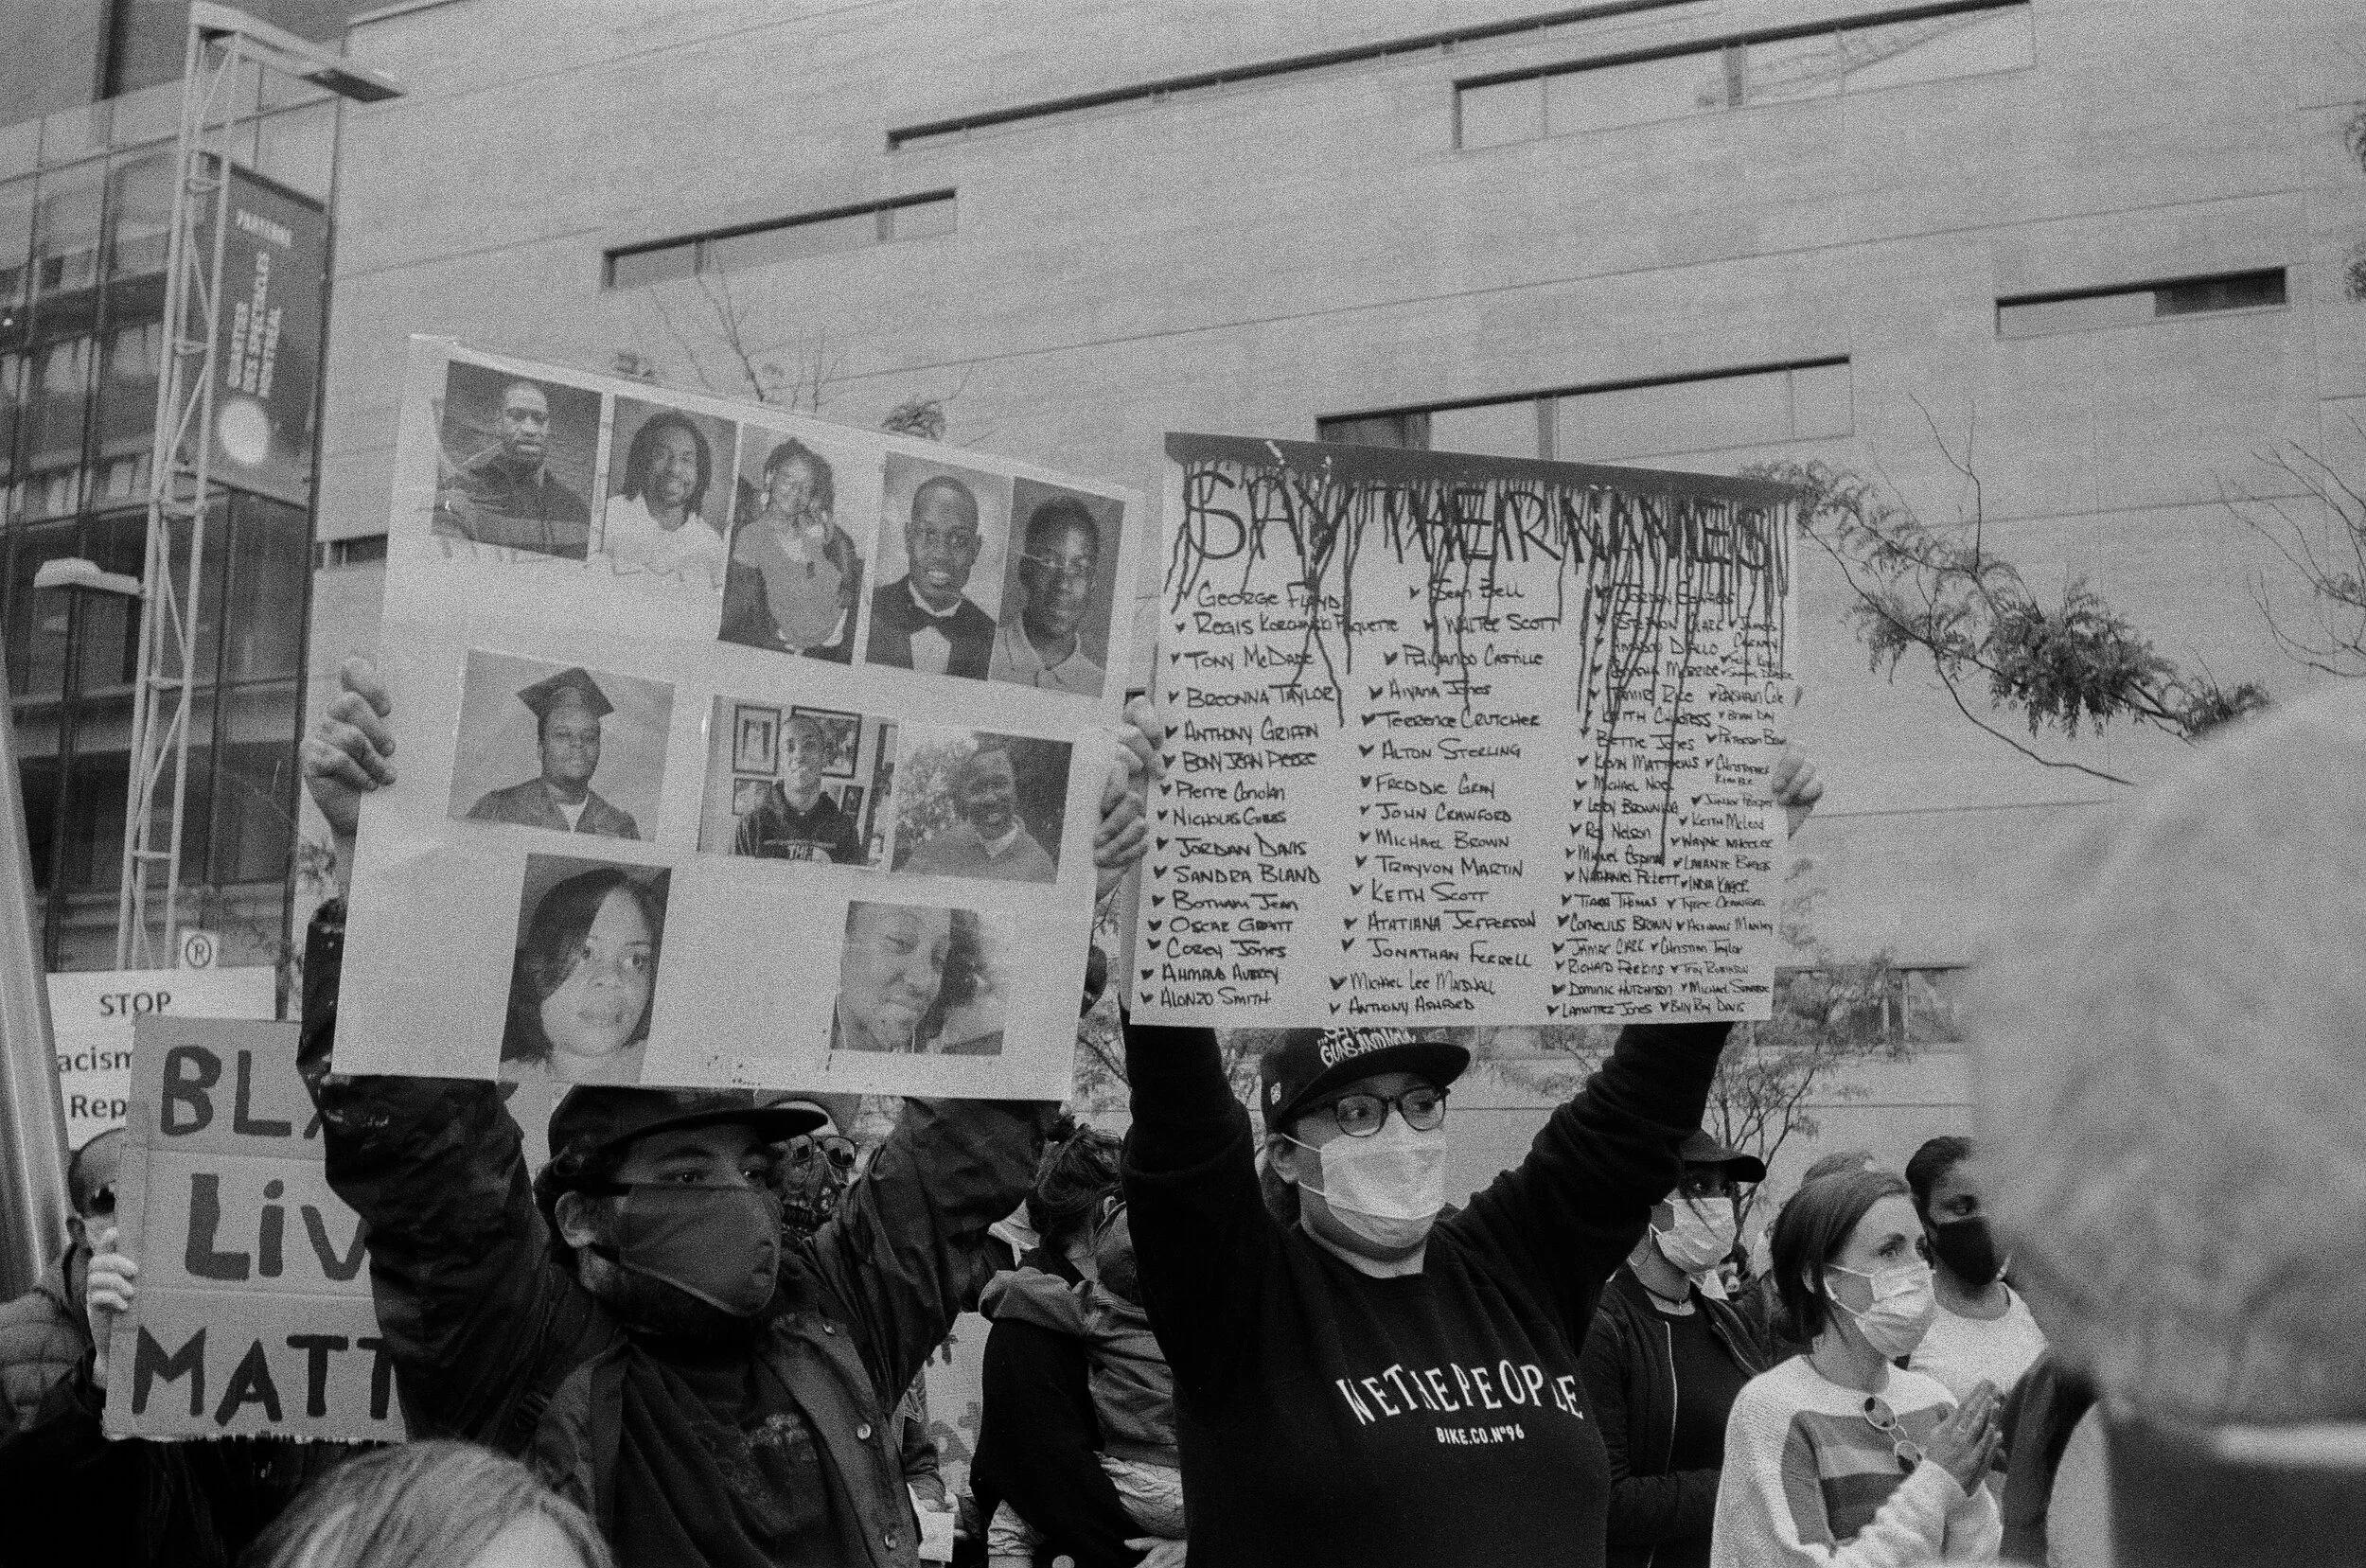 QUARTIER
DES SPECTACLES
MONTRÉAL
SAY THEIR NAMES
GEORGE FLOYD
REGIS KORCHINSKI PAQUETTE
TONY McDADE
BREONNA TAYLOR
ANTHONY GRIFFIN
BONY JEAN PIERRE
Pierre Coriolan
NICHOLAS GIBBS
JORDAN DAVIS
SANDRA BLAND
BOTHAM JEAN
OSCAR GRANT
COREY JONES
AHMAUD AUBREY
ALONZO SMITH
Sean Bell
WALTER SCOTT
PHILANDO CASTILLE
AIYANA JONES
TERRENCE CRUTCHER
ALTON STERLING
FREDDIE GRAY
JOHN CRAWFORD
MICHAEL BROWN
TRAYVON MARTIN
KEITH SCOTT
ATATIANA JEFFERSON
JONATHAN FERRELL
MICHAEL LEE MARSHALL
ANTHONY ASHFORD
AMADOU DIALLO
TAMIR RICE
KEITH CHILDRESS
BETTIE JONES
KEVIN MATTHEWS
MICHAEL NOEL
LEROY BROWNING
ROY NELSON
MIGUEL ESPINAL
NATHANIEL PICKETT
TIARA THOMAS
CORNELIUS BROWN
JAMAR CLARK
RICHARD PERKINS
DOMINIC HUTCHINSON
LAMONTEZ JONES
BRIAN DAY
CHRISTOPHER
KIMBLE
JUNIOR PROSPER
KEITH McLEOD
WAYNE WHEELER
LAVANTE BIGGS
INDIA KAGER
TYREE CRAWFORD
Christian Taylor
TROY ROBINSON
BILLY RAY DAVIS
STOP
acism
Rep
BLA
LiV
MATT
GUNS AND
WETHEPEOPLE
BIKE.CO.Nº96